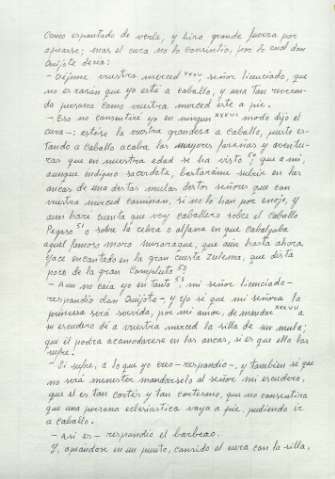 como espantado de verle, y hizo grande fuerza por
apearse; mas el cura no lo consintió, por lo cual don
Quijote decía:
- Déjeme vuestra merced xxxv, señor licenciado, que
no es razón que yo esté a caballo, y una tan reveren-
da persona como vuestra merced esté a pie.
- Eso no consentiré yo en ningún xxxvi modo dijo el
cura -: estése la vuestra grandeza a caballo, pues es-
tando a caballo acaba las mayores fazañas y aventu-
ras que en nuestra edad se ha visto 50; que a mí,
aunque indigno sacerdote, bastaráme subir en las
ancas de una destas mulas destos señores que con
vuestra merced caminan, si no lo han por enojo, y
aun haré cuenta que voy caballero sobre el caballo
Pegaso 51 o sobre la cebra o alfana en que cabalgaba
aquel famoso moro Muzaraque, que aún hasta ahora
yace encantado en la gran cuesta Zulema, que dista
poco de la gran Compluto 52
- Aun no caía yo en tanto 53, mi señor licenciado -
respondió don Quijote -, y yo sé que mi señora la
princesa será servida, por mi amor, de mandar xxxvii a
su escudero dé a vuestra merced la silla de su mula;
que él podrá acomodarse en las ancas, si es que ella las
sufre.
- Sí sufre, a lo que yo creo - respondió -, y también sé que
no será menester mandárselo al señor mi escudero,
que él es tan cortés y tan cortesano, que no consentirá
que una persona eclesiástica vaya a pie, pudiendo ir
a caballo.
- Así es - respondió el barbero.
Y, apeándose en un punto, convidó al cura con la silla,